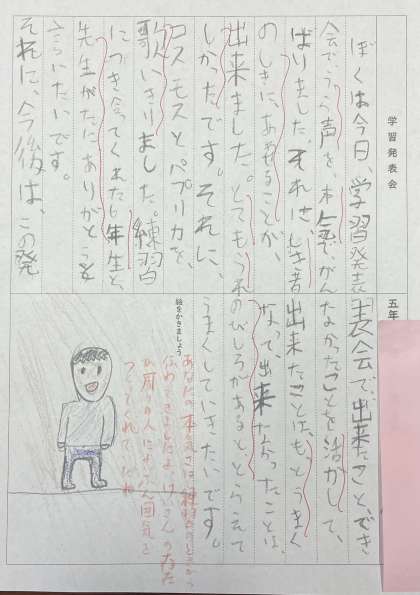 学習発表会
五年
ぼくは今日、学習発表
会でうたう声を、本気でがん
ばりました。それは、しき者
のしきに、あわせることが、
出来ました。とてもうれ
しかったです。それに、
コスモスとパプリカを、
歌いきりました。練習
につき合ってくれた6年生と、
先生がたにありがとうと
いいたいです。
それに、今後は、この発
表会で、出来たこと、でき
なかったことを活かして、
出来たことは、もっとうまく
なって、出来なかったことは、
のびしろがあると、とらえて
うまくしていきたいです。
絵をかきましょう
あなたの本気さは練習のときから
伝わってきましたよ。
が周りの人に
つくってくれて